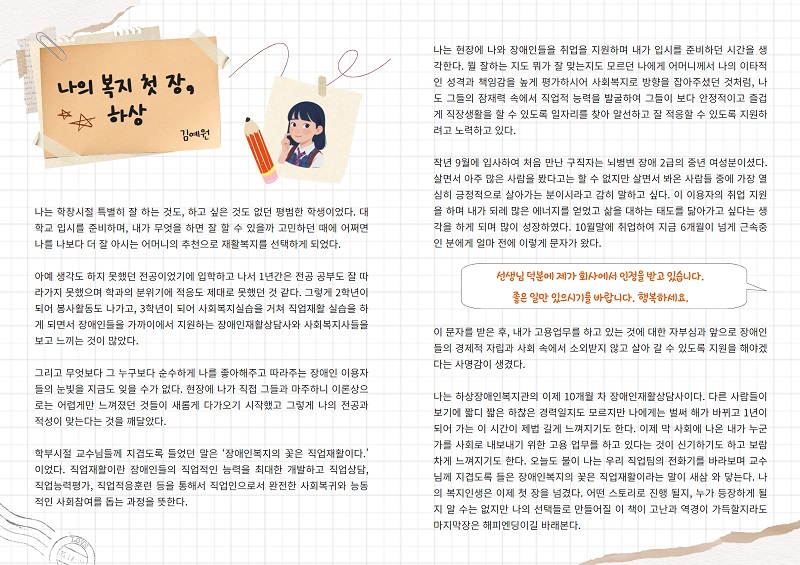 나의 복지 첫 장,
하상
김예원
나는 학창시절 특별히 잘 하는 것도, 하고 싶은 것도 없던 평범한 학생이었다. 대
학교 입시를 준비하며, 내가 무엇을 하면 잘 할 수 있을까 고민하던 때에 어쩌면
나를 나보다 더 잘 아시는 어머니의 추천으로 재활복지를 선택하게 되었다.
아예 생각도 하지 못했던 전공이었기에 입학하고 나서 1년간은 전공 공부도 잘 따
라가지 못했으며 학과의 분위기에 적응도 제대로 못했던 것 같다. 그렇게 2학년이
되어 봉사활동도 나가고, 3학년이 되어 사회복지실습을 거쳐 직업재활 실습을 하
게 되면서 장애인들을 가까이에서 지원하는 장애인재활상담사와 사회복지사들을
보고 느끼는 것이 많았다.
그리고 무엇보다 그 누구보다 순수하게 나를 좋아해주고 따라주는 장애인 이용자
들의 눈빛을 지금도 잊을 수가 없다. 현장에 내가 직접 그들과 마주하니 이론상으
로는 어렵게만 느껴졌던 것들이 새롭게 다가오기 시작했고 그렇게 나의 전공과
적성이 맞는다는 것을 깨달았다.
학부시절 교수님들께 지겹도록 들었던 말은 ‘장애인복지의 꽃은 직업재활이다.’
이었다. 직업재활이란 장애인들의 직업적인 능력을 최대한 개발하고 직업상담,
직업능력평가, 직업적응훈련 등을 통해서 직업인으로서 완전한 사회복귀와 능동
적인 사회참여를 돕는 과정을 뜻한다.
나는 현장에 나와 장애인들을 취업을 지원하며 내가 입시를 준비하던 시간을 생
각한다. 뭘 잘하는 지도 뭐가 잘 맞는지도 모르던 나에게 어머니께서 나의 이타적
인 성격과 책임감을 높게 평가하시어 사회복지로 방향을 잡아주셨던 것처럼, 나
도 그들의 잠재력 속에서 직업적 능력을 발굴하여 그들이 보다 안정적이고 즐겁
게 직장생활을 할 수 있도록 일자리를 찾아 알선하고 잘 적응할 수 있도록 지원하
려고 노력하고 있다.
작년 9월에 입사하여 처음 만난 구직자는 뇌병변 장애 2급의 중년 여성분이셨다.
살면서 아주 많은 사람을 봤다고는 할 수 없지만 살면서 봐온 사람들 중에 가장 열
심히 긍정적으로 살아가는 분이시라고 감히 말하고 싶다. 이 이용자의 취업 지원
을 하며 내가 되레 많은 에너지를 얻었고 삶을 대하는 태도를 닮아가고 싶다는 생
각을 하게 되며 많이 성장하였다. 10월말에 취업하여 지금 6개월이 넘게 근속중
인 분에게 얼마 전에 이렇게 문자가 왔다.
선생님 덕분에 제가 회사에서 인정을 받고 있습니다.
좋은 일만 있으시기를 바랍니다. 행복하세요.
이 문자를 받은 후, 내가 고용업무를 하고 있는 것에 대한 자부심과 앞으로 장애인
들의 경제적 자립과 사회 속에서 소외받지 않고 살아 갈 수 있도록 지원을 해야겠
다는 사명감이 생겼다.
나는 하상장애인복지관의 이제 10개월 차 장애인재활상담사이다. 다른 사람들이
보기에 짧디 짧은 하찮은 경력일지도 모르지만 나에게는 벌써 해가 바뀌고 1년이
되어 가는 이 시간이 제법 길게 느껴지기도 한다. 이제 막 사회에 나온 내가 누군
가를 사회로 내보내기 위한 고용 업무를 하고 있다는 것이 신기하기도 하고 보람
차게 느껴지기도 한다. 오늘도 불이 나는 우리 직업팀의 전화기를 바라보며 교수
님께 지겹도록 들은 장애인복지의 꽃은 직업재활이라는 말이 새삼 와 닿는다. 나
의 복지인생은 이제 첫 장을 넘겼다. 어떤 스토리로 진행 될지, 누가 등장하게 될
지 알 수는 없지만 나의 선택들로 만들어질 이 책이 고난과 역경이 가득할지라도
마지막장은 해피엔딩이길 바래본다.